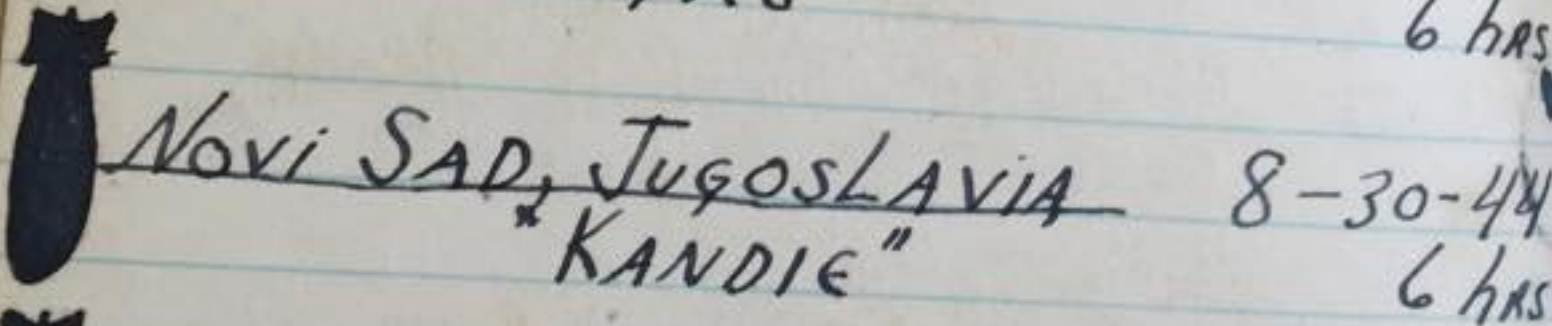 6 hRS
Novi SAD, JUGOSLAViA 8-30-44
"KANDIE"
6 hRS